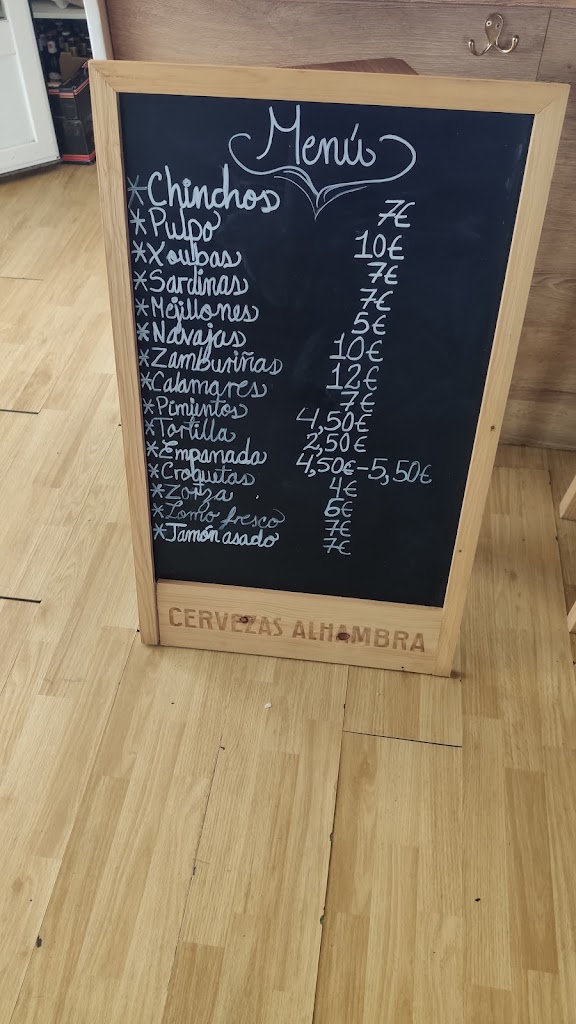 Menú
*Chinchos 7€
*Pulpo 10€
*Xoubas 7€
*Sardinas 7€
*Mejillones 5€
*Navajas 10€
*Zamburiñas 12€
*Calamares 7€
*Pimientos 4,50€
*Tortilla 2,50€
*Empanada 4,50€-5,50€
*Croquetas 4€
*Zorza 6€
*Lomo fresco 7€
*Jamón asado 7€
CERVEZAS ALHAMBRA